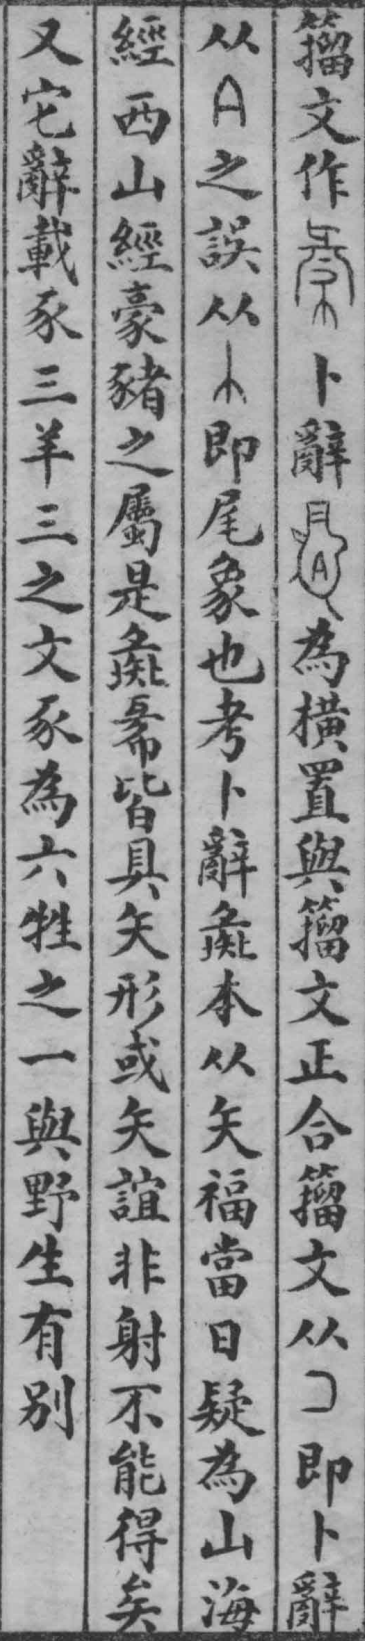 籀文作卜辭為橫置與籀文正合籀文从コ即卜辭
从A之誤从即尾象也考卜辭彘本从矢福當日疑為山海
經西山經豪豬之屬是彘皆具矢形或矢誼非射不能得矣
又它辭載豕三羊三之文豕為六牲之一與野生有別